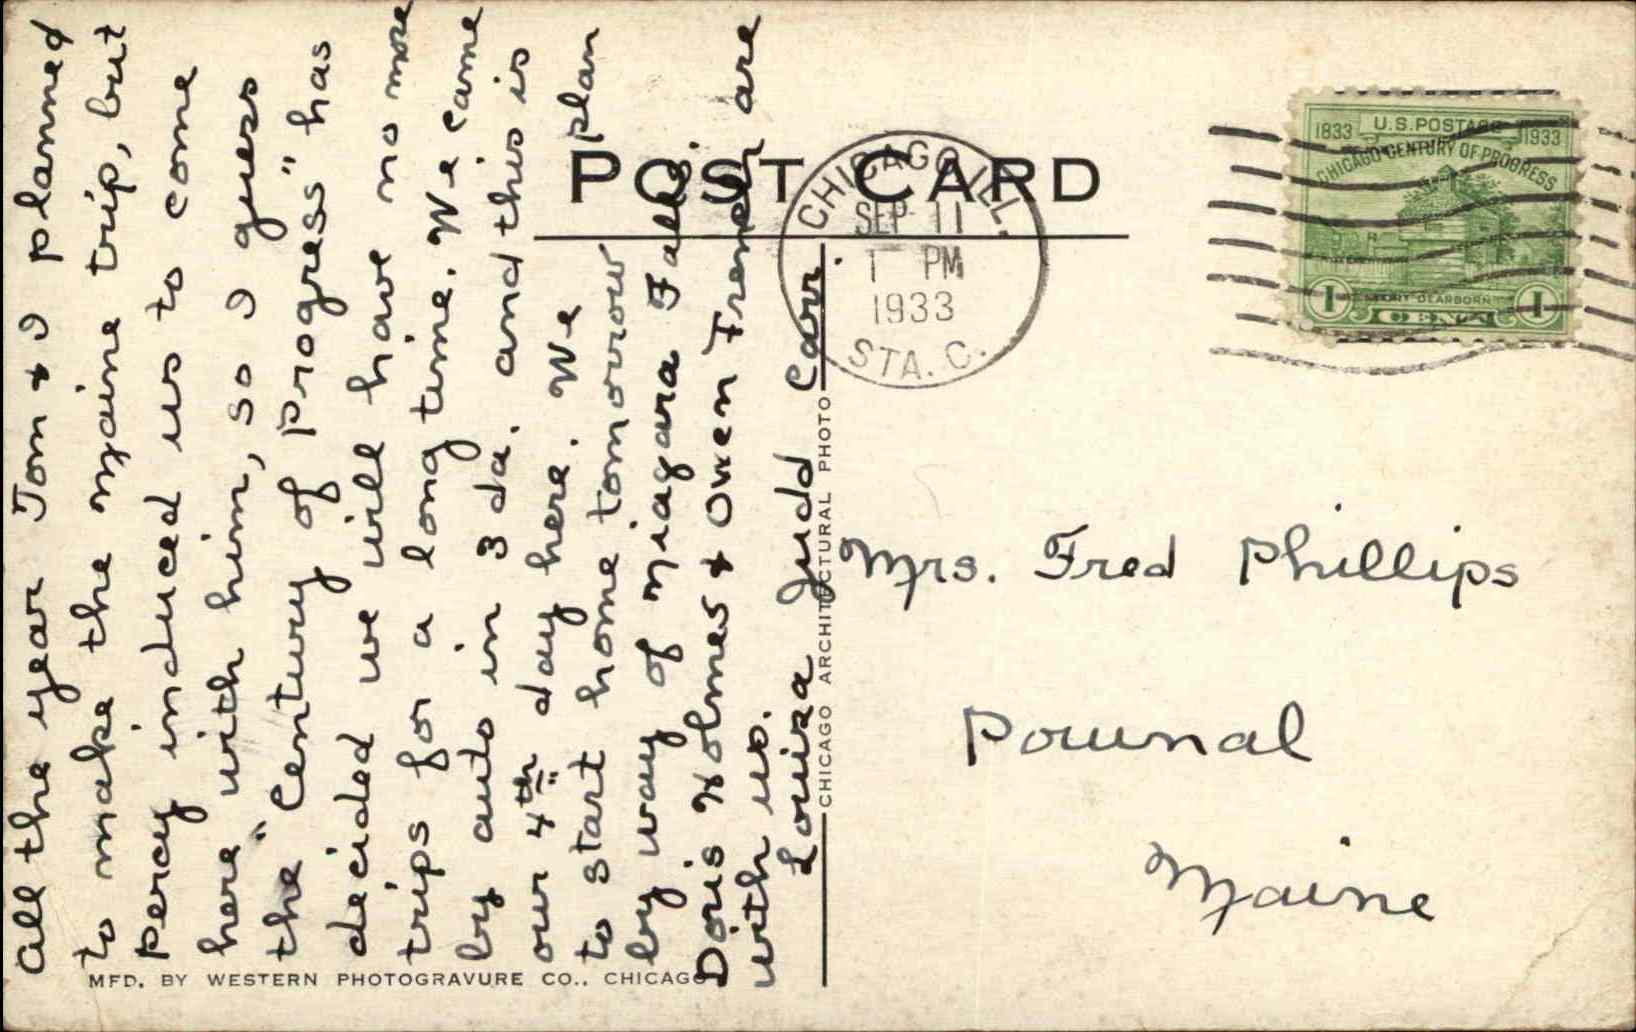 All the year Tom & I planned
to make the Maine trip, but
Percy induced us to come
here with him, so I guess
the "Century of Progress" has
decided we will have no more
trips for a long time. We came
by auto in 3 da. and this is
our 4th day here. We plan
to start home tomorrow
by way of Niagara Falls.
Doris Holmes & Owen French are
with us.
Louisa Judd Carr.
POST CARD
CHICAGO, ILL.
SEP 11
1 PM
1933
STA. C.
1833 U.S. POSTAGE 1933
CHICAGO CENTURY OF PROGRESS
FORT DEARBORN
1 CENT 1
Mrs. Fred Phillips
Pownal
Maine
CHICAGO ARCHITECTURAL PHOTO
MFD. BY WESTERN PHOTOGRAVURE CO., CHICAGO